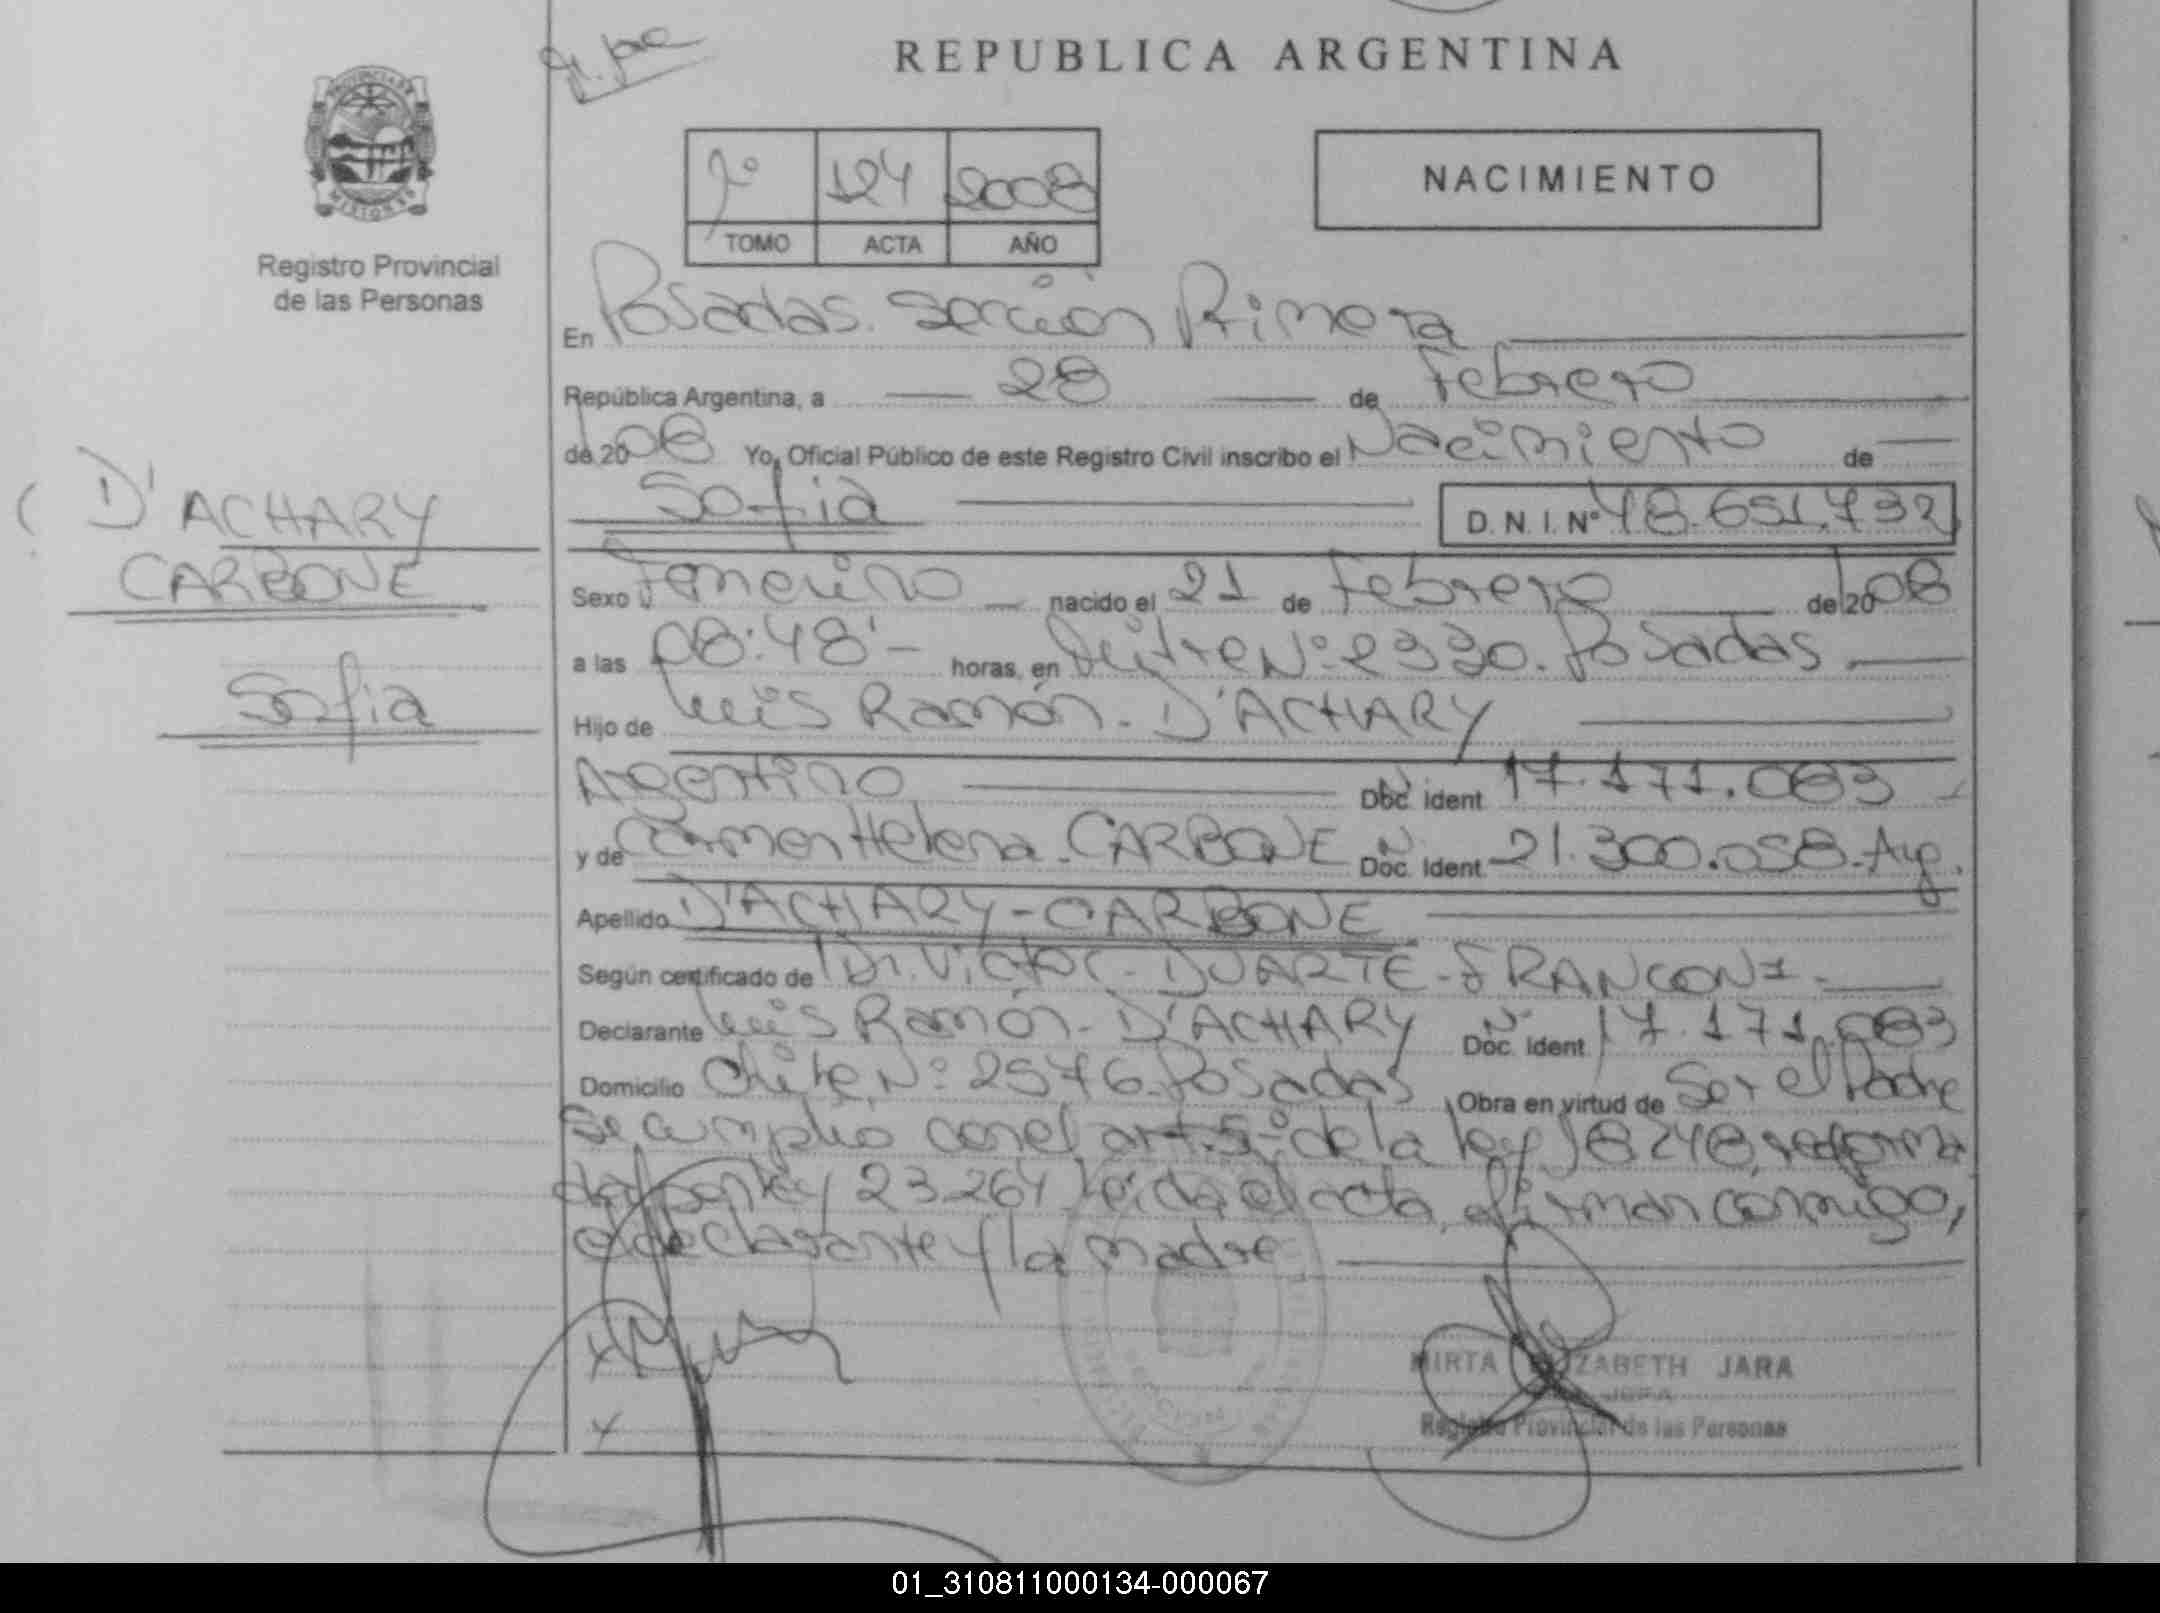 REPUBLICA ARGENTINA
PROVINCIA DE
MISIONES
Registro Provincial
de las Personas
124 2008
TOMO ACTA AÑO
NACIMIENTO
En Posadas. Sección Primera
República Argentina, a 28 de Febrero
de 2008 Yo, Oficial Público de este Registro Civil inscribo el Nacimiento de
Sofia D. N. I. Nº 48.651.732
D'ACHARY
CARBONE
Sofia
Sexo Femenino nacido el 21 de Febrero de 2008
a las 08:48'- horas, en Mitre Nº 2330. Posadas
Hijo de Luis Ramón - D'ACHARY
Argentino Nº Doc. Ident. 17.171.083
y de Carmen Helena - CARBONE Nº Doc. Ident. 21.300.058-Arg.
Apellido D'ACHARY-CARBONE
Según certificado de Dr. Victor - DUARTE - FRANCONI -
Declarante Luis Ramón - D'ACHARY Nº Doc. Ident. 17.171.083
Domicilio Chile Nº 2576. Posadas Obra en virtud de Ser el Padre
Se cumplió con el art. 5º de la ley 18248, reforma
da por ley 23.264 Leida el acta, firman conmigo,
el declarante y la madre
x
x
MIRTA ELIZABETH JARA
JEFA
Registro Provincial de las Personas
01_310811000134-000067